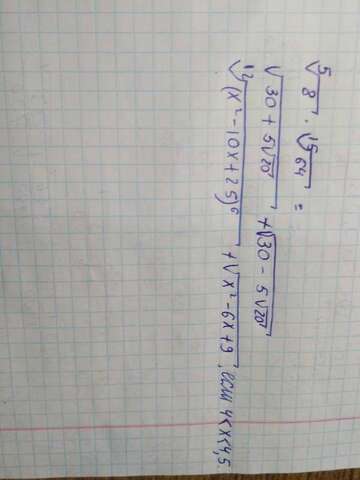 ⁵√8 · ¹⁵√64 =
√(30 + 5√20) + √(30 - 5√20)
¹²√((x² - 10x + 25)⁶) + √(x² - 6x + 9), если 4 < x < 4,5